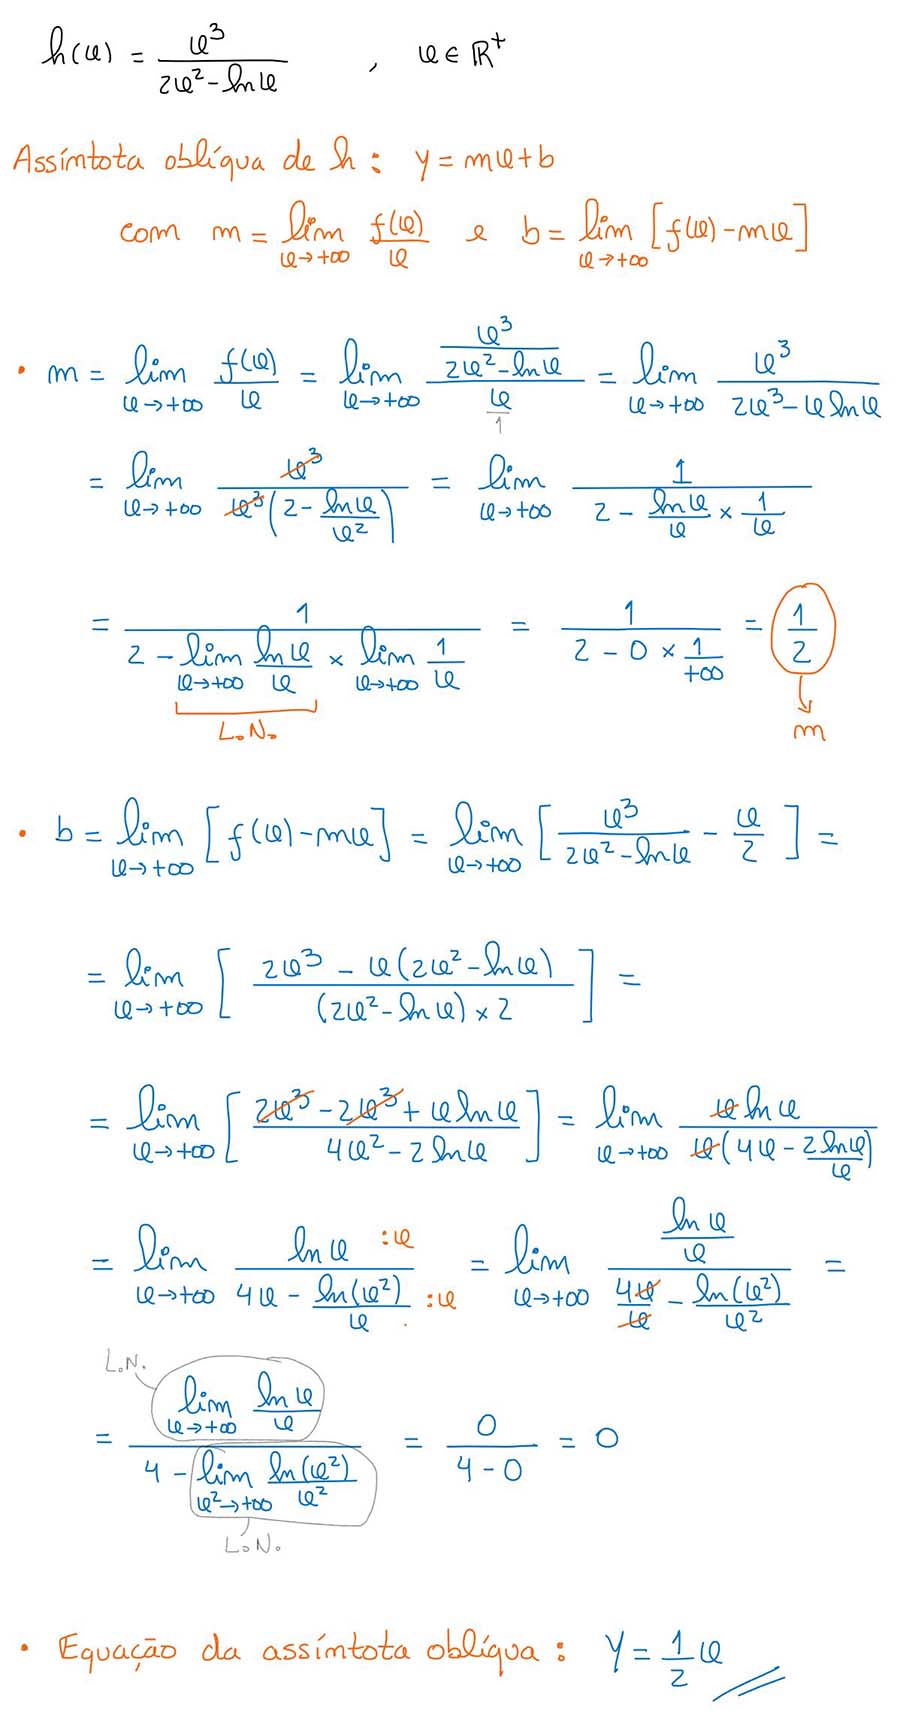 h(x) = x³/(2x² - ln x) , x ∈ ℝ⁺
Assíntota oblíqua de h : y = mx + b
com m = lim_{x→+∞} f(x)/x e b = lim_{x→+∞} [f(x) - mx]
• m = lim_{x→+∞} f(x)/x = lim_{x→+∞} (x³/(2x² - ln x))/(x/1) = lim_{x→+∞} x³/(2x³ - x ln x)
= lim_{x→+∞} x³/(x³(2 - ln x/x²)) = lim_{x→+∞} 1/(2 - ln x/x × 1/x)
= 1/(2 - lim_{x→+∞} ln x/x × lim_{x→+∞} 1/x) = 1/(2 - 0 × 1/+∞) = 1/2
L.N.
m
• b = lim_{x→+∞} [f(x) - mx] = lim_{x→+∞} [x³/(2x² - ln x) - x/2] =
= lim_{x→+∞} [(2x³ - x(2x² - ln x))/((2x² - ln x) × 2)] =
= lim_{x→+∞} [(2x³ - 2x³ + x ln x)/(4x² - 2 ln x)] = lim_{x→+∞} x ln x/(x(4x - 2 ln x/x))
= lim_{x→+∞} ln x :x/(4x - ln(x²)/x) :x = lim_{x→+∞} (ln x/x)/(4x/x - ln(x²)/x²) =
L.N.
= (lim_{x→+∞} ln x/x)/(4 - lim_{x²→+∞} ln(x²)/x²) = 0/(4 - 0) = 0
L.N.
• Equação da assíntota oblíqua : y = 1/2 x